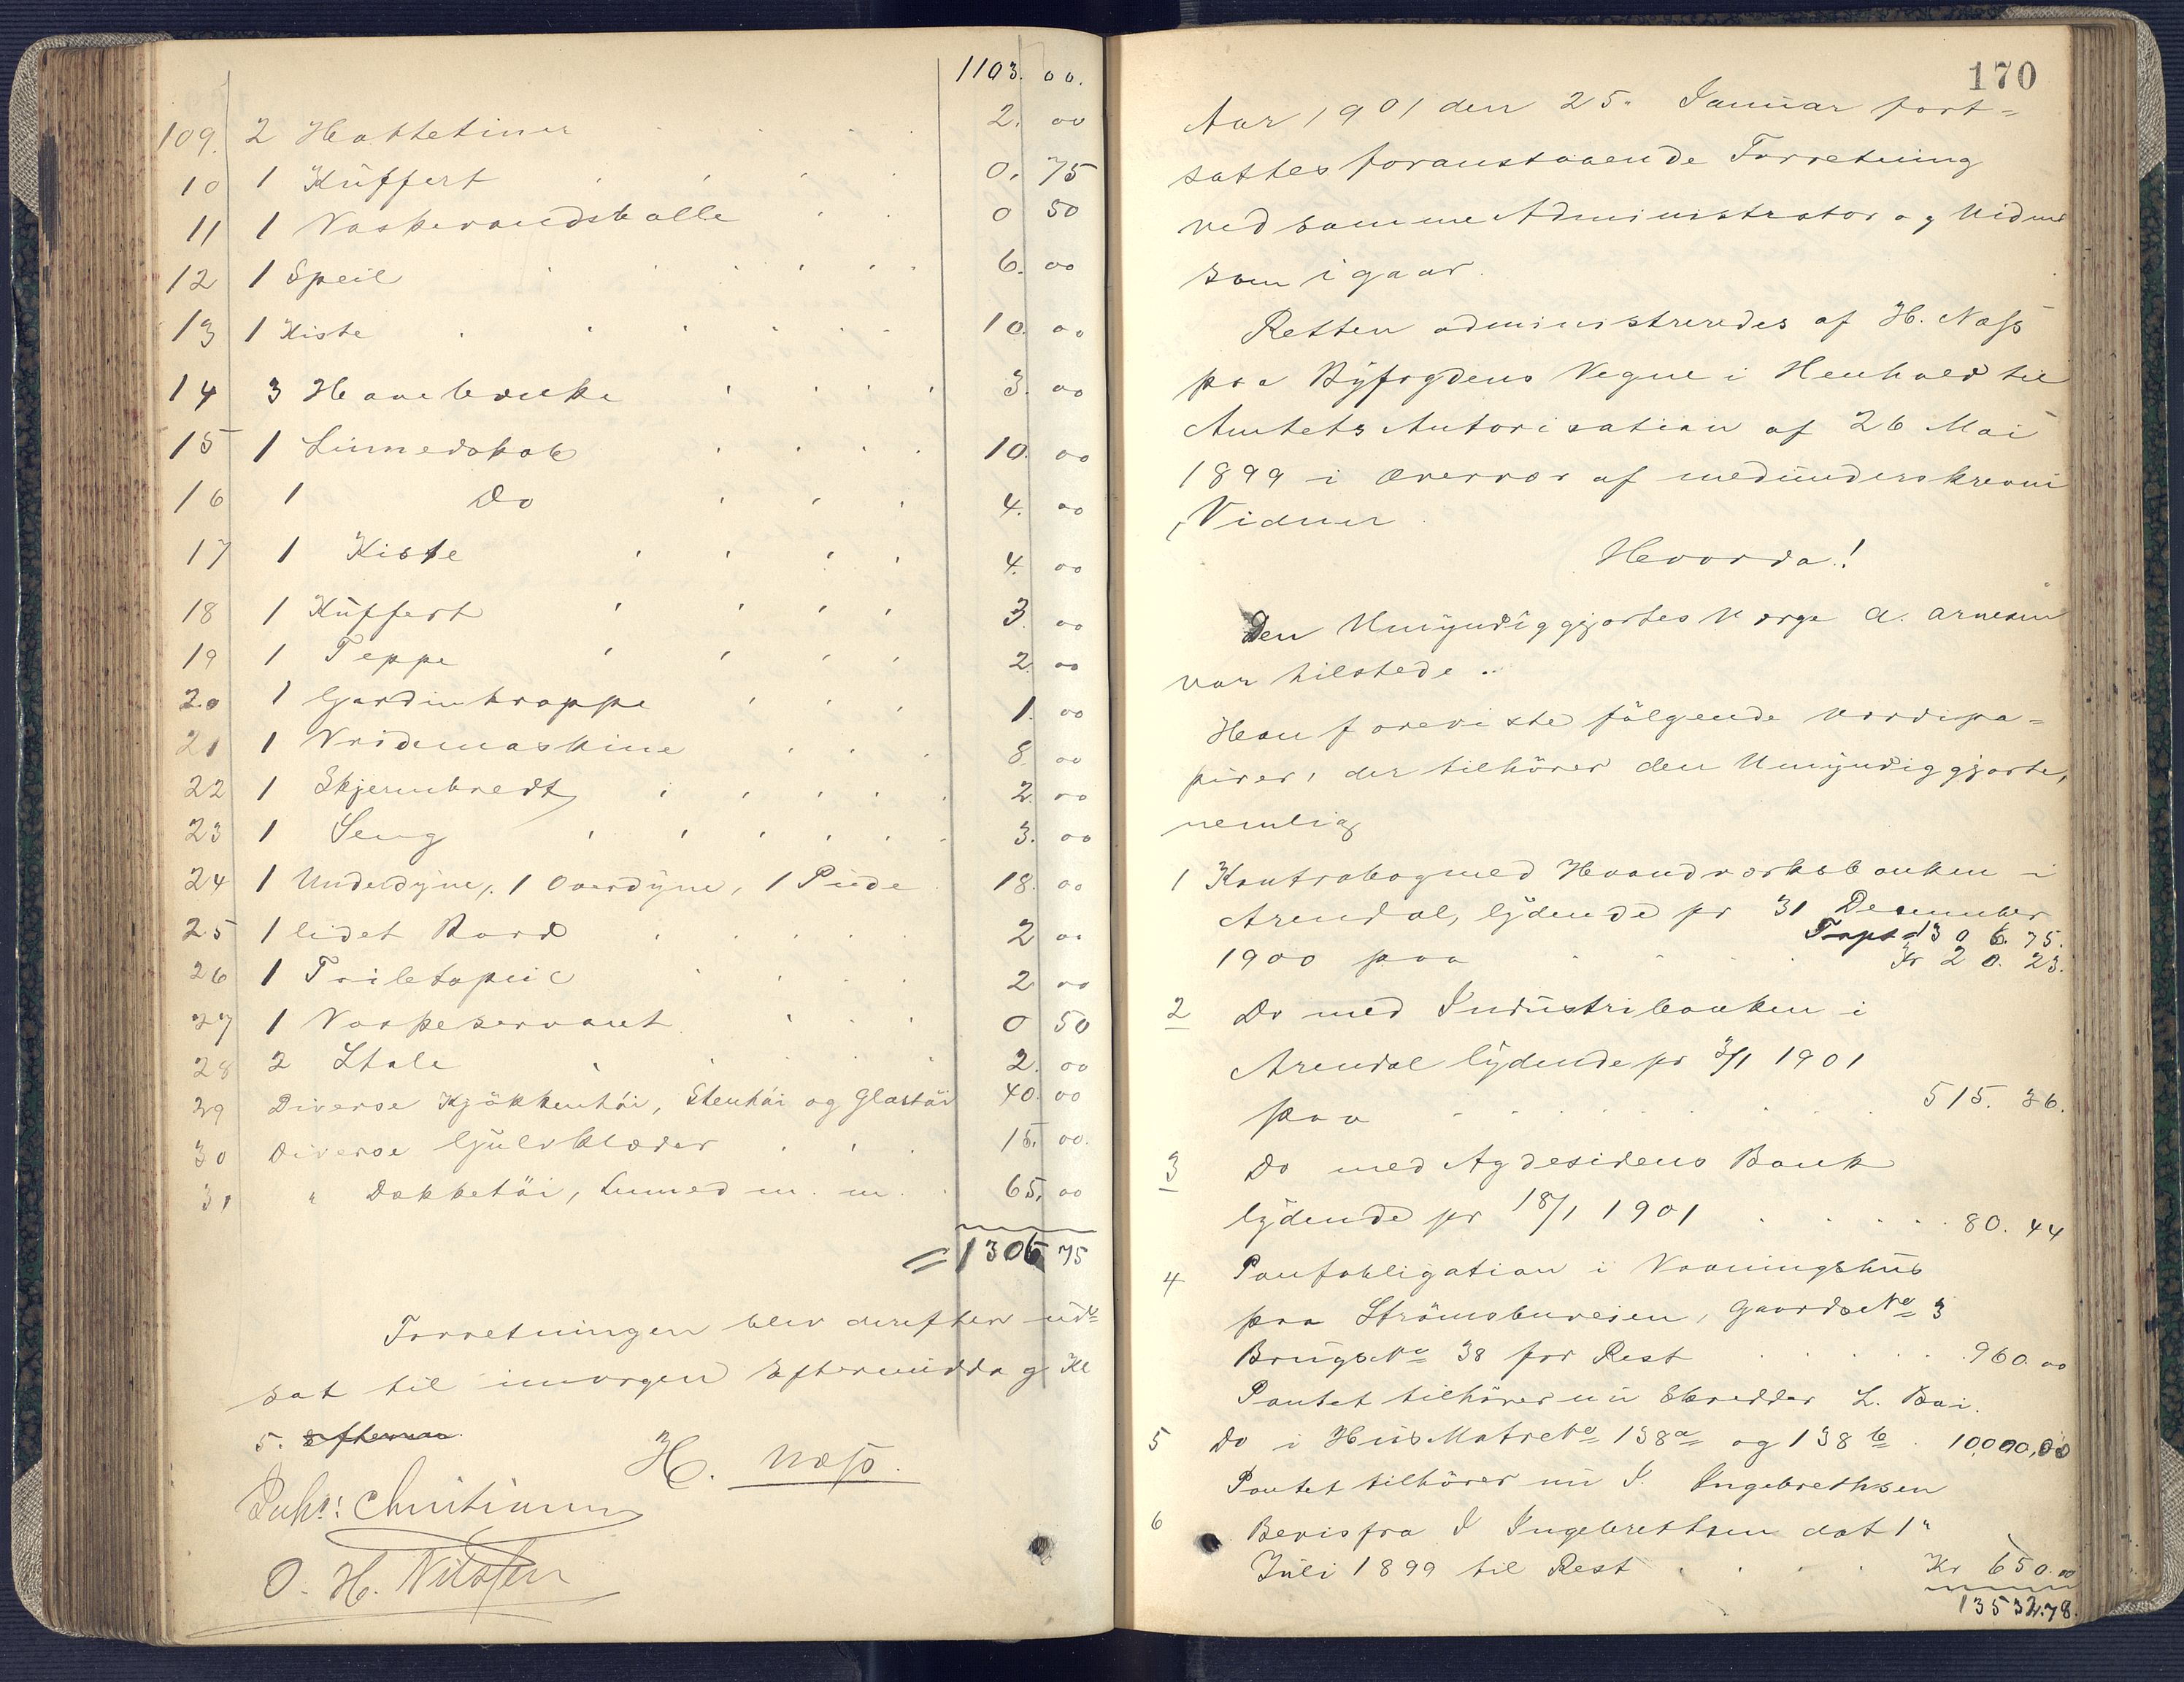 1103. 00.
109. 2 Hattetiner 2. 00
10 1 Küffert 0. 75
11 1 Vaskevandsballe 0 50
12 1 Speil 6. 00
13 1 Kiste 10. 00
14 3 Havebænke 3. 00
15 1 Linnedskab 10. 00
16 1 Do 4. 00
17 1 Kiste 4. 00
18 1 Küffert 3. 00
19 1 Teppe 2. 00
20 1 Gardintrappe 1. 00
21 1 Vridemaskine 8. 00
22 1 Skjermbredt 2. 00
23 1 Seng 3. 00
24 1 Underdÿne, 1 Overdÿne, 1 Püde 18. 00
25 1 lidet Bord 2 00
26 1 Toiletspeil 2 00
27 1 Vaskeservant 0 50
28 2 Stole 2. 00
29 Diverse Kjökkentöi, Stentöi og Glastöi 40. 00
30 Diverse Gülvklæder 15. 00.
31 " Dækketöi, Linned m. m. 65. 00
= 1306 75
Forretningen blev derefter üd=
sat til imorgen Eftermiddag Kl
5. Efterm
H. Næss.
Johs: Christiansen
O. H. Nilssen
170
Aar 1901 den 25. Januar fort=
sattes foranstaaende Forretning
ved samme Administrator og Vidner
som igaar.
Retten administreredes af H. Næss
paa Bÿfogdens Vegne i Henhold til
Amtets Autorisation af 26 Mai
1899 i Overvær af medünderskrevne
Vidner
Hvorda!
Den Umÿndiggjortes Værge A. Arnesen
var tilstede.
Han foreviste fölgende Værdipa=
pirer, der tilhörer den Umÿndiggjorte,
nemlig
1 Kontrabog med Haandværksbanken i
Arendal, lÿdende pr 31 December
Trpt 1306. 75.
1900 paa Kr 20. 23.
2 Do med Indüstribanken i
Arendal lÿdende pr 3/1 1901
paa 515. 36.
3 Do med Agdesidens Bank
lÿdende pr 18/1 1901 80. 44
4 Pantobligation i Vaaningshüs
paa Strömsbuveien, Gaards No 3
Brügs No 38 for Rest 960. 00
Pantet tilhörer nü Skredder L. Boi.
5 Do i Hüs Matr No 138a og 138b 10,000,00
Pantet tilhörer nü I. Ingebrethsen
6 Bevis fra I Ingebrettsen dat 1"
Jüli 1899 til Rest Kr 650. 00
13532.78.